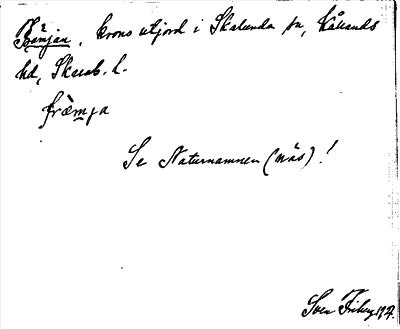 Främjan, krons utjord i Skalunda sn, Kållands
hd, Skarab. l.
främja
Se Naturnamnen (näs)!
Sven Friberg